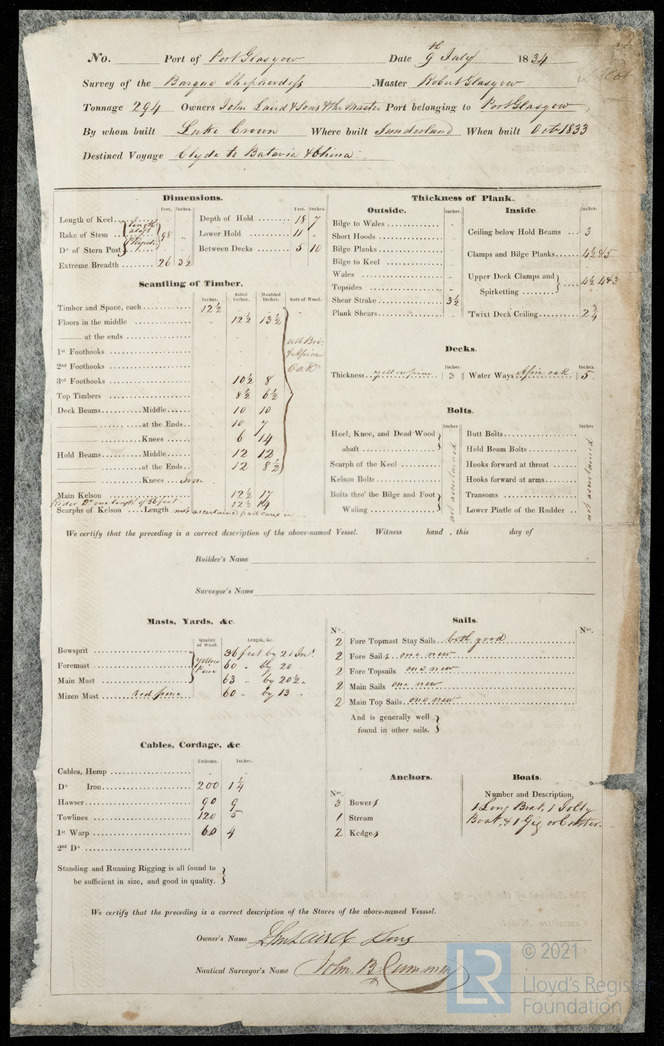 No. Port of Port Glasgow Date 9th July 1834
Survey of the Barque Shepherdess Master Robert Glasgow
Tonnage 294 Owners John Laird & Sons & the Master Port belonging to Port Glasgow
By whom built Luke Crown Where built Sunderland When built Oct 1833
Destined Voyage Clyde to Batavia & China
Dimensions.
Feet. Inches.
Length of Keel length
Rake of Stem aloft 98
Do of Stern Post
Extreme Breadth 26 3½
Feet. Inches.
Depth of Hold 18 7
Lower Hold 11
Between Decks 5 10
Scantling of Timber.
Inches. Sided Inches. Moulded Inches. Sort of Wood.
Timber and Space, each 12½
Floors in the middle 12½ 13½
at the ends
1st Foothooks
2nd Foothooks
3rd Foothooks 10½ 8
Top Timbers 8½ 6½
Deck Beams Middle 10 10
at the Ends 10 7
Knees 6 14
Hold Beams Middle 12 12
at the Ends 12 8½
Knees Iron
Main Kelson 12½ 17
Rider Do one length of 36 feet 12½ 14
Scarphs of Kelson Length not ascertained
& African
Oak
Thickness of Plank.
Outside. Inches.
Bilge to Wales
Short Hoods
Bilge Planks
Bilge to Keel
Wales
Topsides
Shear Strake 3½
Plank Shears
Inside Inches.
Ceiling below Hold Beams 3
Clamps and Bilge Planks 4½ & 5
Upper Deck Clamps and Spirketting 4½ 4 & 3
'Twixt Deck Ceiling 2¾
Decks.
Thickness yellow pine Inches 3 Water Ways Afrin oak Inches 5
Bolts.
Inches
Heel, Knee, and Dead Wood abaft
Scarph of the Keel
Kelson Bolts
Bolts thro' the Bilge and Foot Waling
not ascertained
Inches
Butt Bolts
Hold Beam Bolts
Hooks forward at throat
Hooks forward at arms
Transoms
Lower Pintle of the Rudder
not ascertained
We certify that the preceding is a correct description of the above-named Vessel. Witness hand, this day of
Builder's Name
Surveyor's Name
Masts, Yards, &c.
Quality of Wood. Length, &c.
Bowsprit 36 feet by 21 In.
Foremast yellow 60 " by 20
Main Mast Pine 63 " by 20½
Mizen Mast red pine 60 " by 13
Sails.
No. No.
2 Fore Topmast Stay Sails both good
2 Fore Sails one new
2 Fore Topsails one new
2 Main Sails one new
2 Main Top Sails one new
And is generally well found in other sails.
Cables, Cordage, &c
Fathoms Inches.
Cables, Hemp
Do Iron 200 1¼
Hawser 90 9
Towlines 120 5
1st Warp 60 4
2nd Do
Standing and Running Rigging is all found to
be sufficient in size, and good in quality.
Anchors.
No.
3 Bowers
1 Stream
2 Kedges
Boats.
Number and Description,
1 Long Boat, 1 Jolly
Boat, & 1 Gig or Cutter.
We certify that the preceding is a correct description of the Stores of the above-named Vesssel.
Owner's Name Jno Laird & Sons
Nautical Surveyor's Name John B. Cumming
LR
© 2021
Lloyd's Register
Foundation